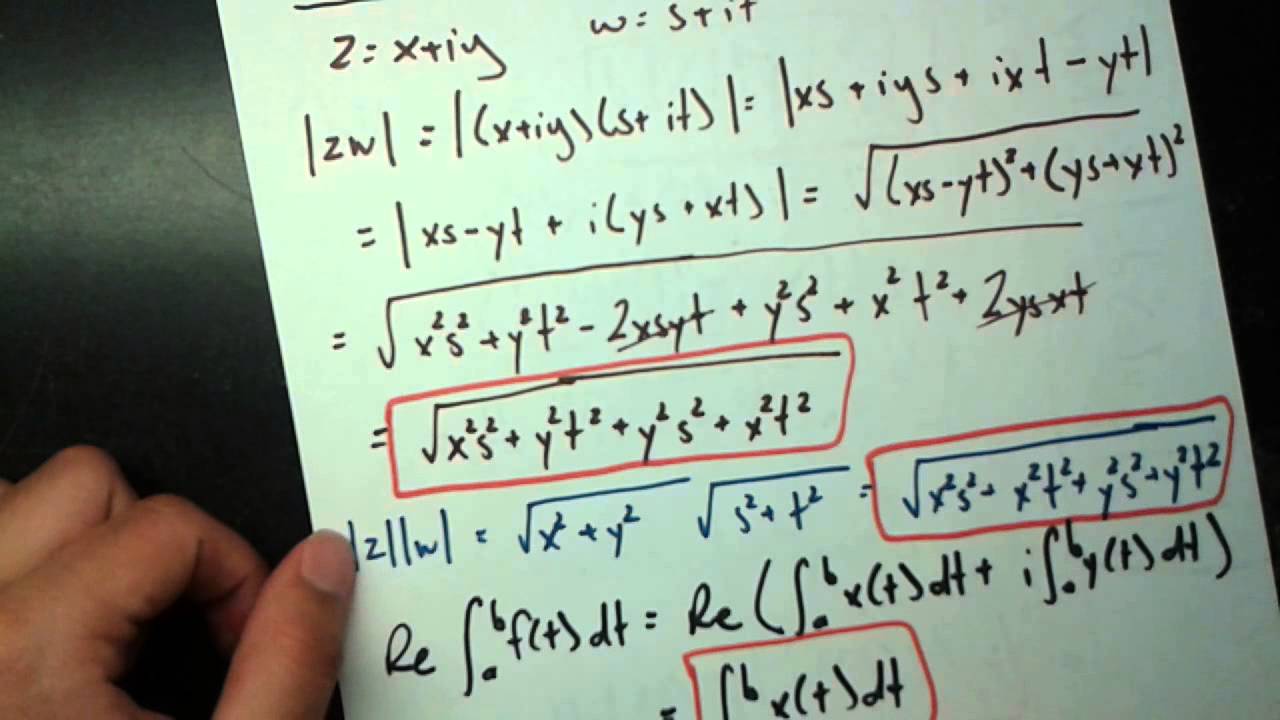 z = x+iy w = s+it
|zw| = |(x+iy)(s+it)| = |xs + iys + ixt - yt|
= |xs-yt + i(ys+xt)| = √((xs-yt)²+(ys+xt)²)
= √(x²s² + y²t² - 2xsyt + y²s² + x²t² + 2ysxt)
= √(x²s² + y²t² + y²s² + x²t²)
|z||w| = √(x²+y²) √(s²+t²) = √(x²s²+ x²t²+ y²s²+y²t²)
Re ∫ₐᵇ f(t)dt = Re (∫ₐᵇ x(t)dt + i∫ₐᵇ y(t)dt)
= ∫ᵇ x(t)dt